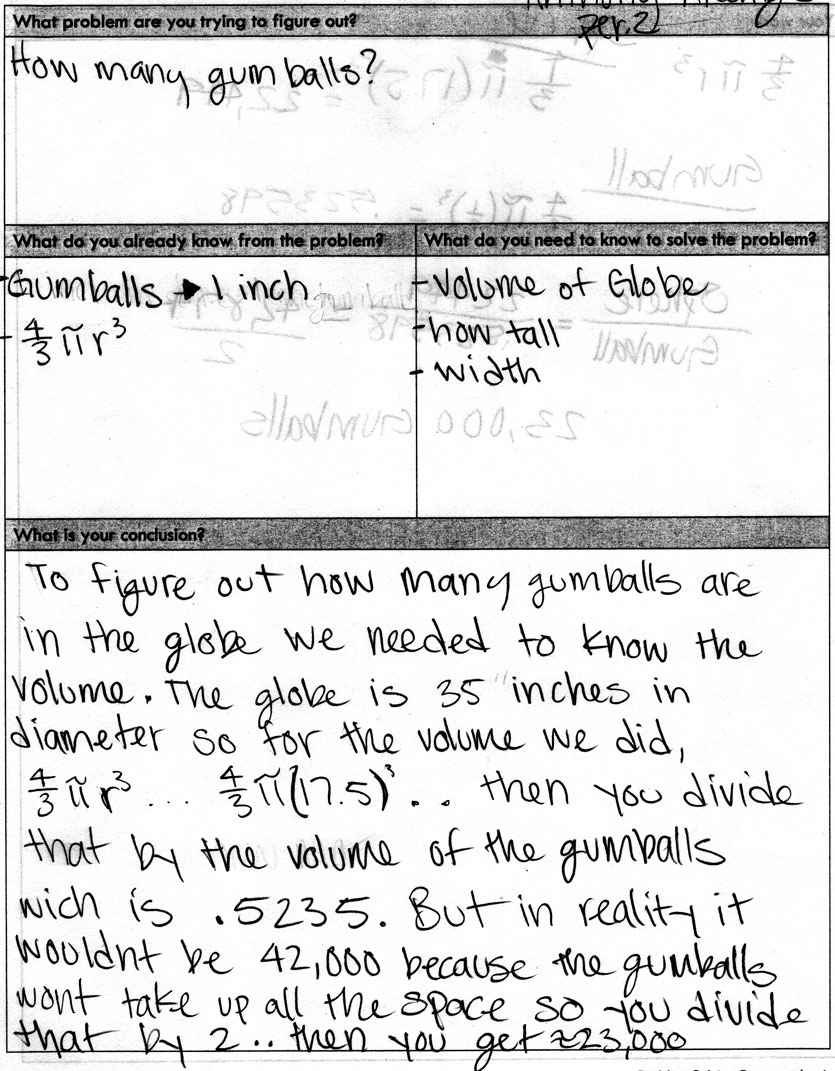 per.2
What problem are you trying to figure out?
How many gumballs?
What do you already know from the problem?
- Gumballs → 1 inch
- 4/3 π r³
What do you need to know to solve the problem?
- volume of Globe
- how tall
- width
What is your conclusion?
To figure out how many gumballs are
in the globe we needed to know the
volume. The globe is 35" inches in
diameter so for the volume we did,
4/3 π r³ ... 4/3 π(17.5)³ .. then you divide
that by the volume of the gumballs
wich is .5235. But in reality it
wouldnt be 42,000 because the gumballs
wont take up all the space so you divide
that by 2.. then you get ≈23,000